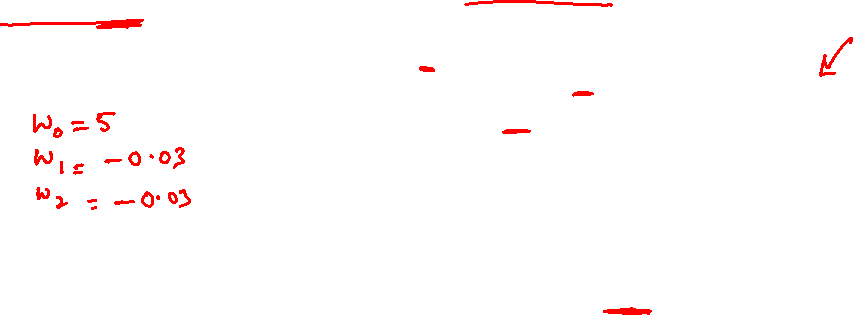 w₀ = 5
w₁ = -0.03
w₂ = -0.03